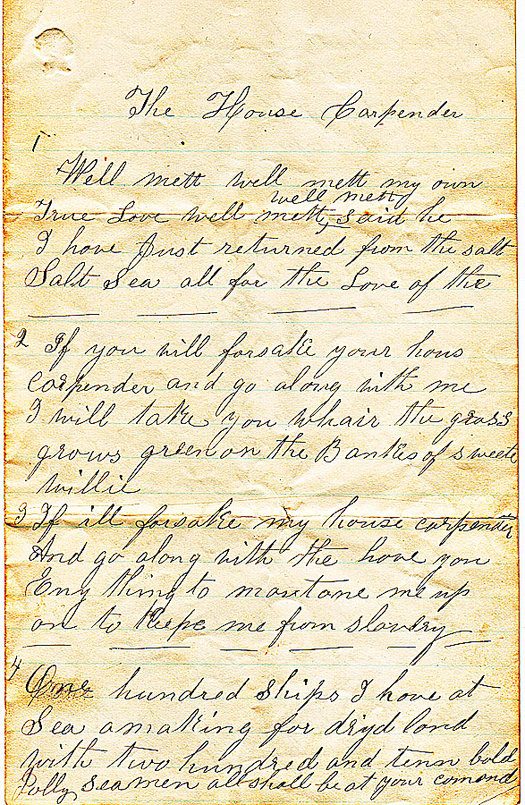 The House Carpender
1
Well mett well mett my own
well mett
True Love well mett, said he
I have Just returned from the salt
Salt Sea all for the Love of the
2 If you will forsake your hous
carpender and go along with me
I will take you whair the grass
grows green on the Bankes of sweete
willie
3 If ill forsake my house carpender
And go along with the have you
Eny thing to mantane me up
on to Keepe me from slavery
4
One hundred ships I have at
Sea amaking for dryd land
with two hundred and tenn bold
Jolly seamen all shall be at your comand